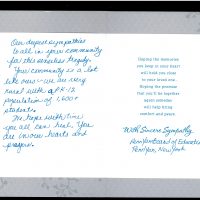 Our deepest sympathies
to all in your community
for this senseless tragedy.
Your community is a lot
like ours - we are very
rural with a PK-12
population of 1,600
students.
We hope with time
you all can heal. You
are in our hearts and
prayers.
Hoping the memories
you keep in your heart
will hold you close
to your loved one.
Hoping the promise
that you'll be together
again someday
will bring
comfort and peace.
With Sincere Sympathy,
Penn Yan Board of Education
Penn Yan, New York